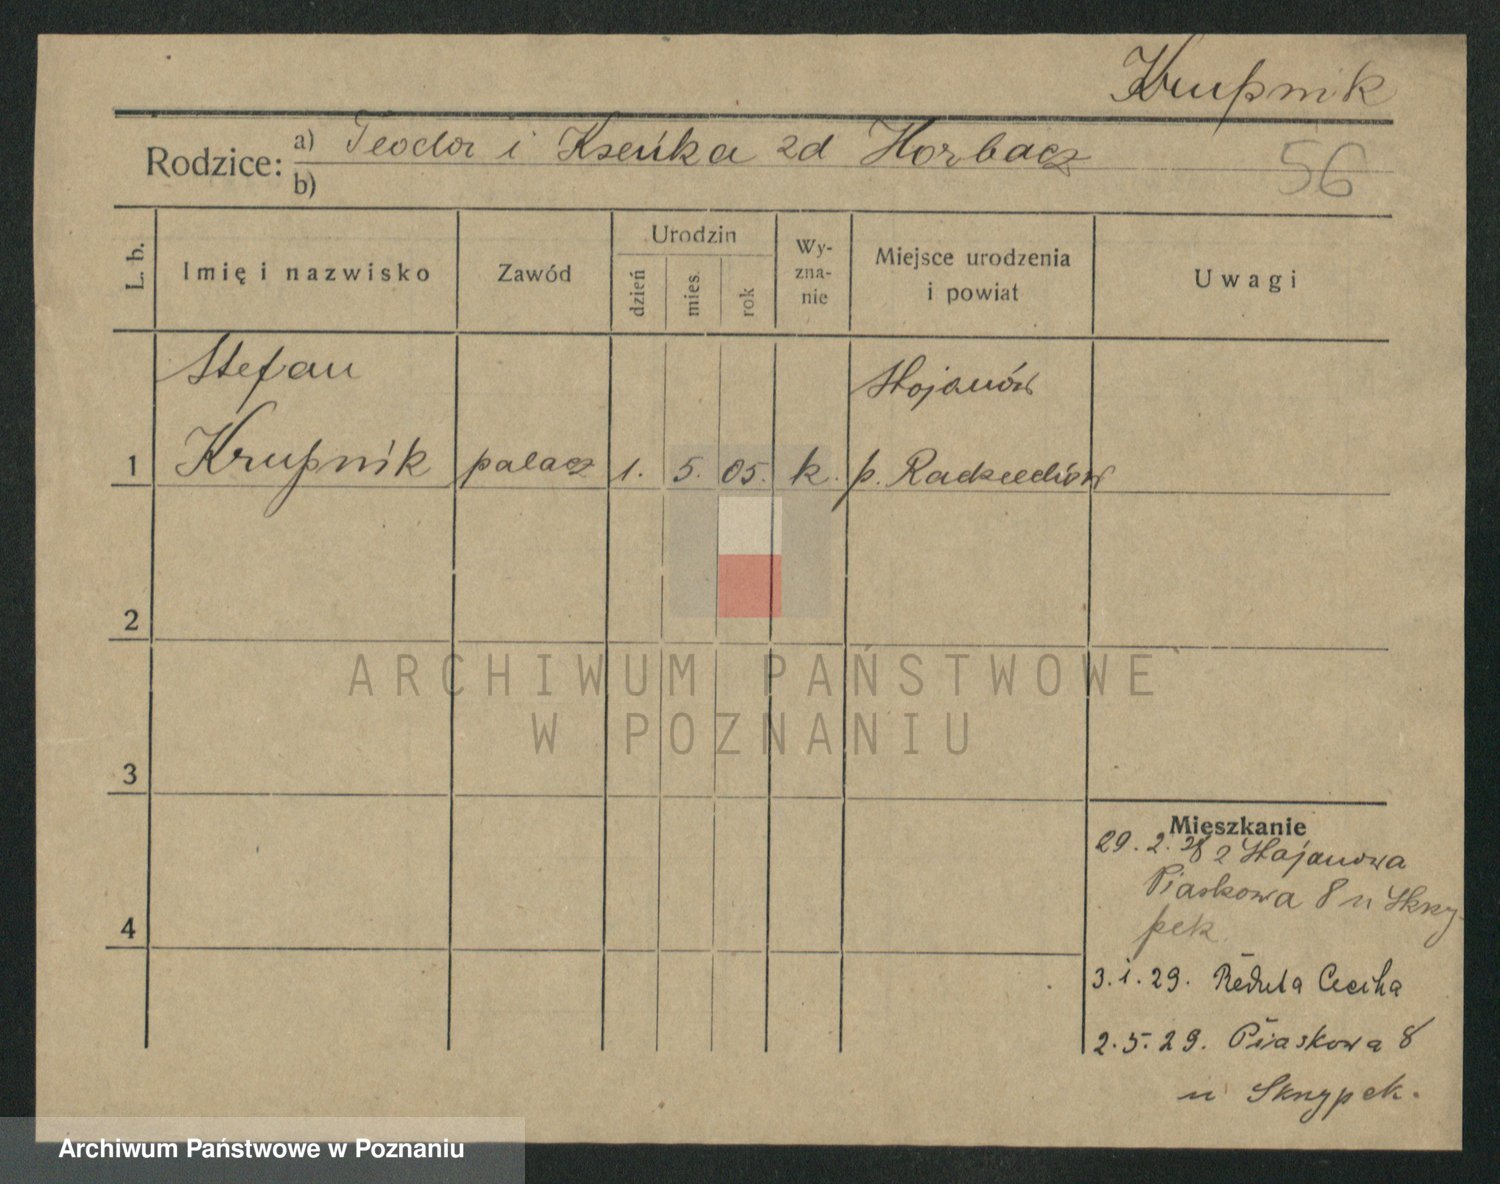 Krupnik
Rodzice: a) Teodor i Kseńka zd Horbacz
b)
56
L. b.
Imię i nazwisko
Zawód
Urodzin
dzień
mies.
rok
Wy-
zna-
nie
Miejsce urodzenia
i powiat
Uwagi
Stefan
Stojanów
1 Krupnik palacz 1. 5. 05. k. p. Radziechów
2
3
4
ARCHIWUM PAŃSTWOWE
W POZNANIU
Mieszkanie
29. 2. 28 z Stojanowa
Piaskowa 8 u Skrzy-
pek
3. 1. 29. Reduta
2. 5. 29. Piaskowa 8
u Skrzypek.
Archiwum Państwowe w Poznaniu